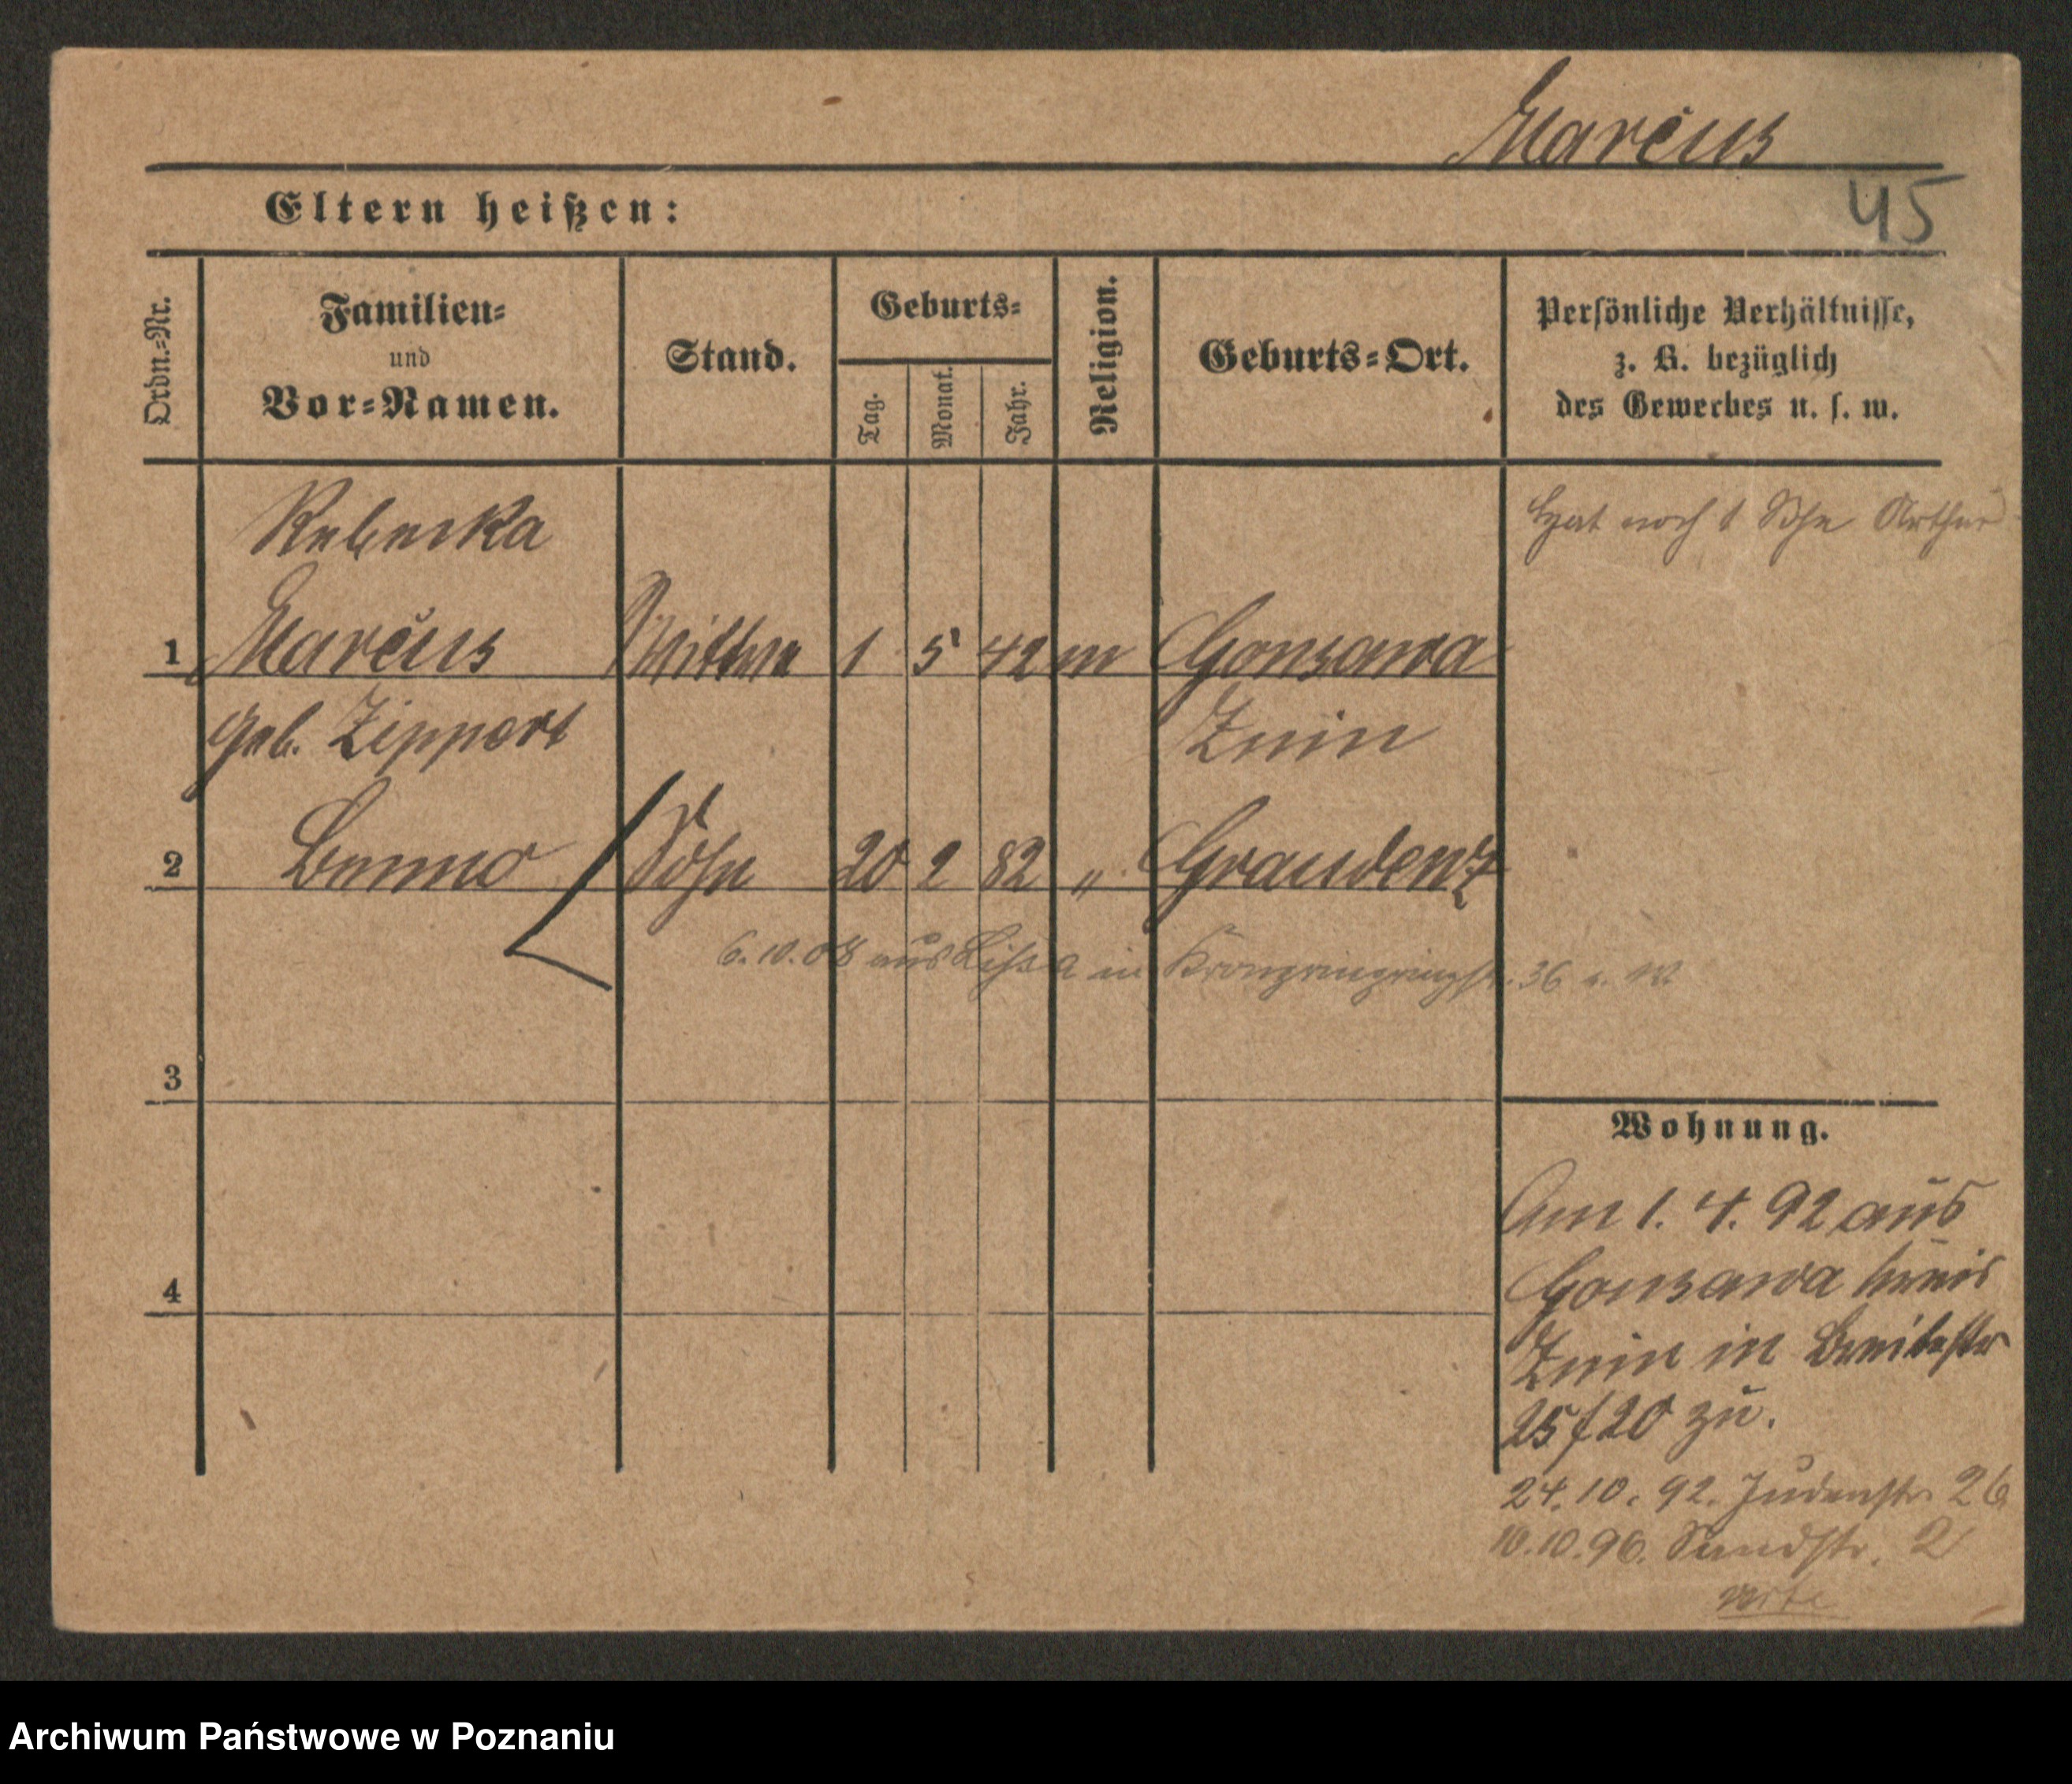 Marcus
45
Eltern heißen:
Ordn.=Nr.
Familien=
und
Vor=Namen.
Stand.
Geburts=
Tag.
Monat.
Jahr.
Religion.
Geburts=Ort.
Persönliche Verhältnisse,
z. B. bezüglich
des Gewerbes u. s. w.
Rebecka
Hat noch 1 Sohn Arthur
1 Marcus Wittwe 1 5 42 m Gonsawa
geb. Zippert Znin
2 Benno Sohn 20 2 82 " Graudenz
6.10.08 aus Lissa in Kronprinzenstr. 36
3
Wohnung.
4
Am 1. 4. 92 aus
Gonsawa Kreis
Znin in Breitestr
25/20 zu.
24.10.92. Judenstr. 26
10.10.96. Sandstr. 2